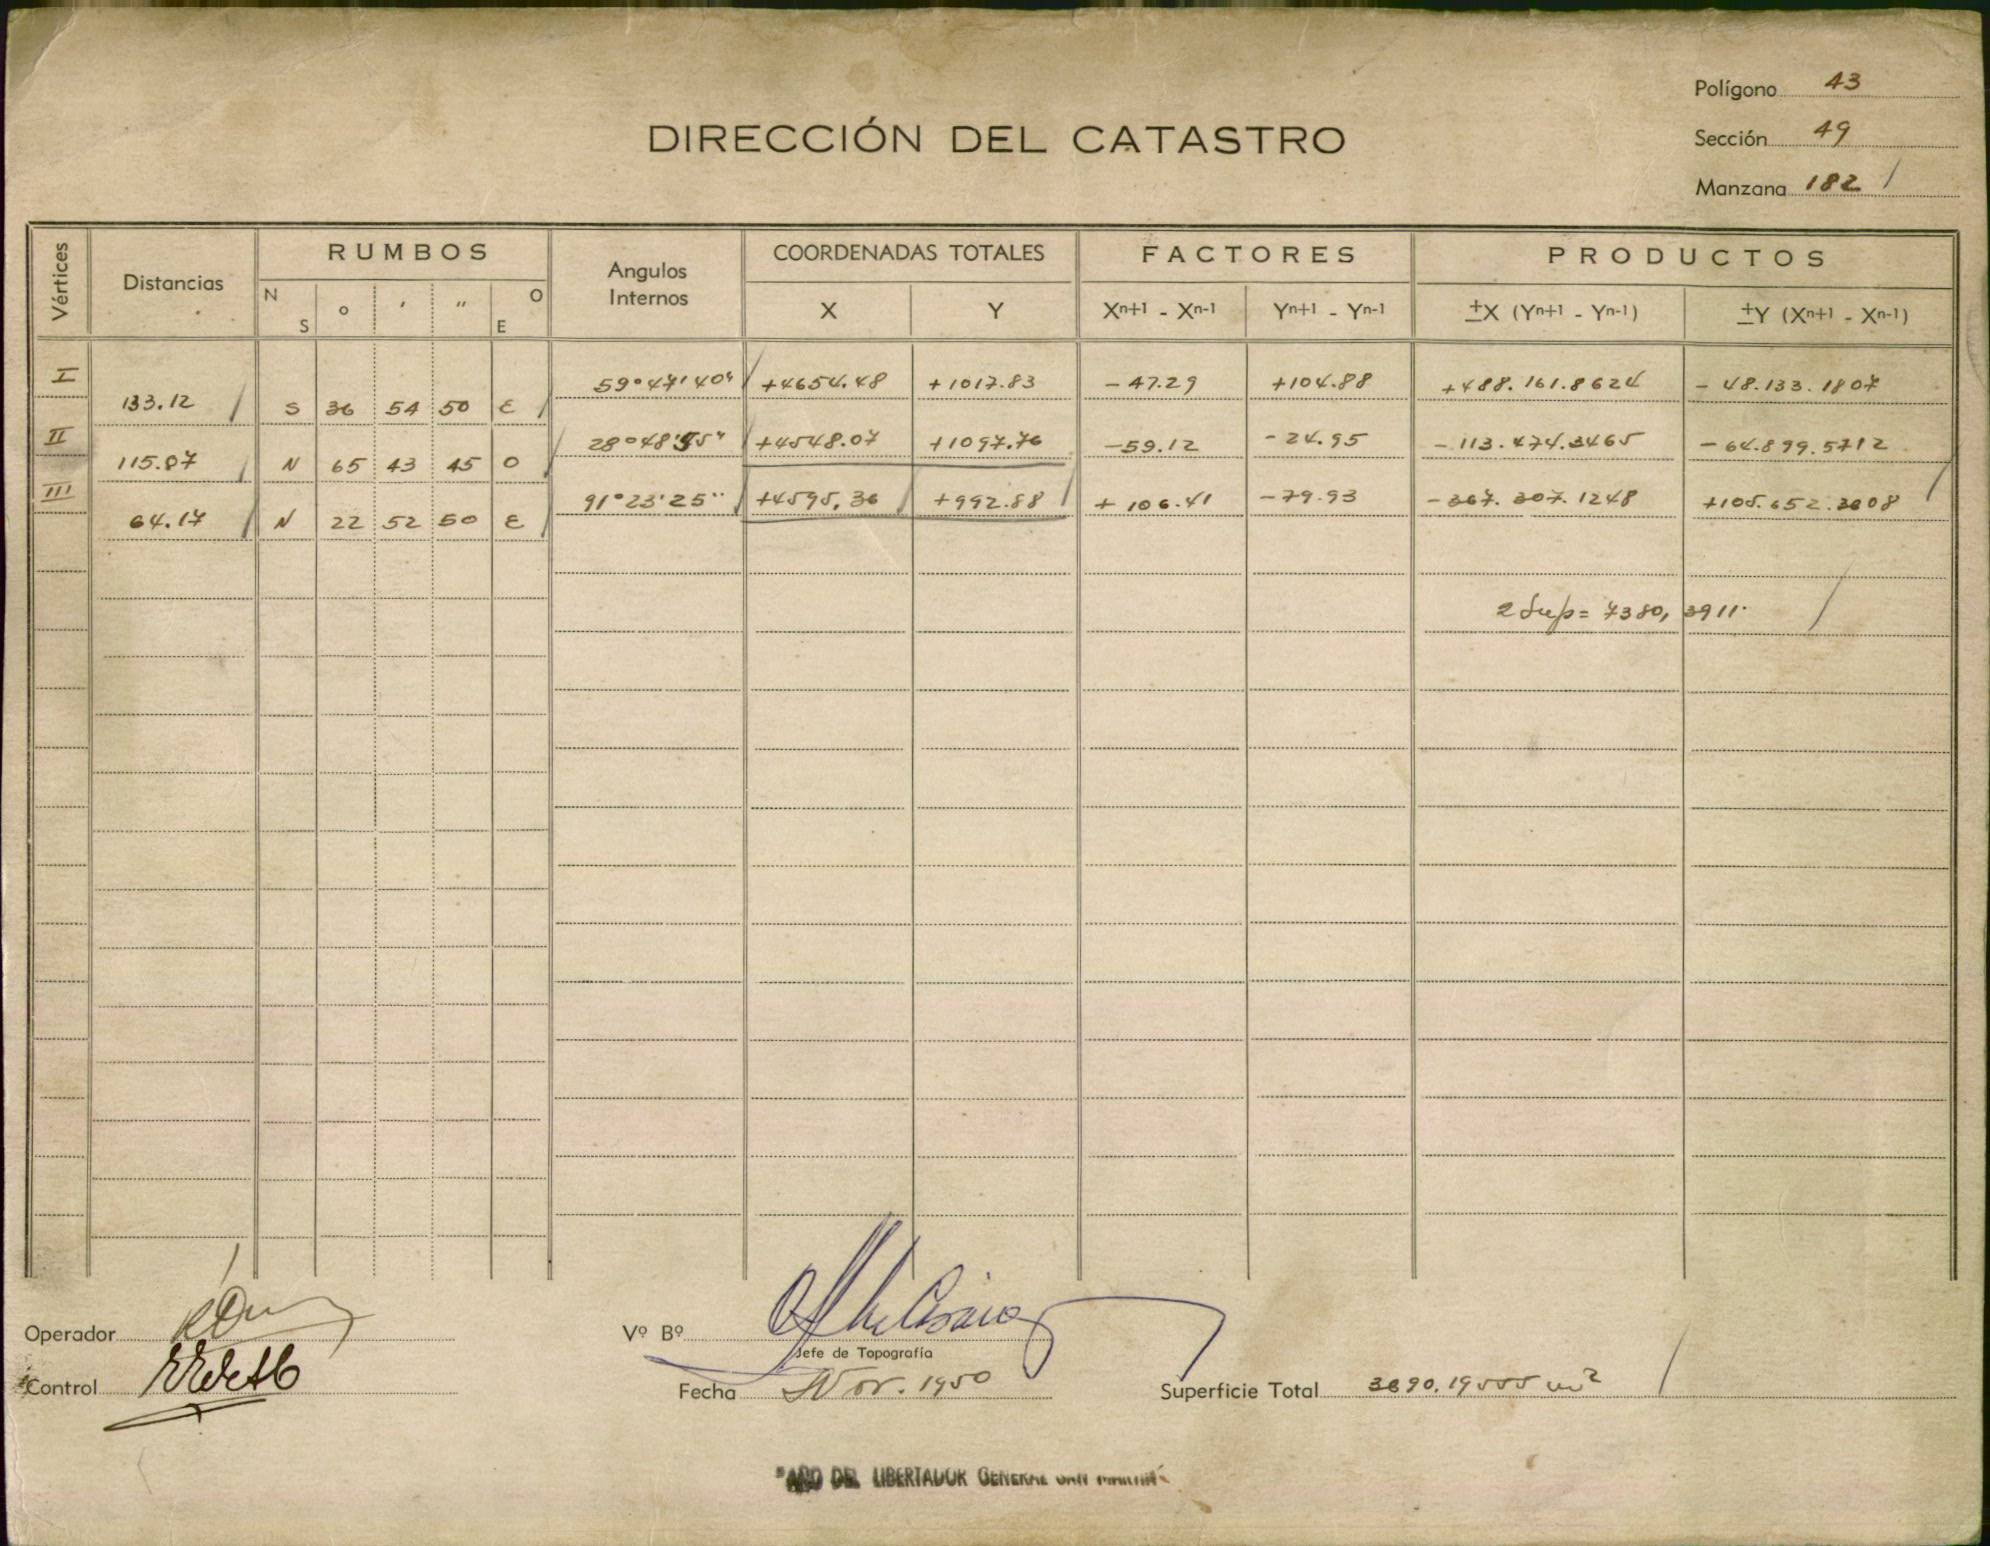 Polígono 43
DIRECCIÓN DEL CATASTRO
Sección 49
Manzana 182
Vértices Distancias RUMBOS Angulos Internos COORDENADAS TOTALES FACTORES PRODUCTOS
N S ° ' " O E X Y Xn+1 - Xn-1 Yn+1 - Yn-1 ±X (Yn+1 - Yn-1) ±Y (Xn+1 - Xn-1)
I 59°47'40" +4654.48 +1017.83 -47.29 +104.88 +488.161.8624 -48.133.1807
133.12 S 36 54 50 E
II 28°48'55" +4548.07 +1097.76 -59.12 -24.95 -113.474.3465 -64.899.5712
115.07 N 65 43 45 O
III 91°23'25" +4595,36 +992.88 +106.41 -79.93 -367.307.1248 +105.652.3608
64.17 N 22 52 50 E
2 Sup= 7380, 3911
Operador
Vº Bº
Jefe de Topografía
Control
Fecha Nov. 1950
Superficie Total 3690,19555 m²
"AÑO DEL LIBERTADOR GENERAL SAN MARTIN"